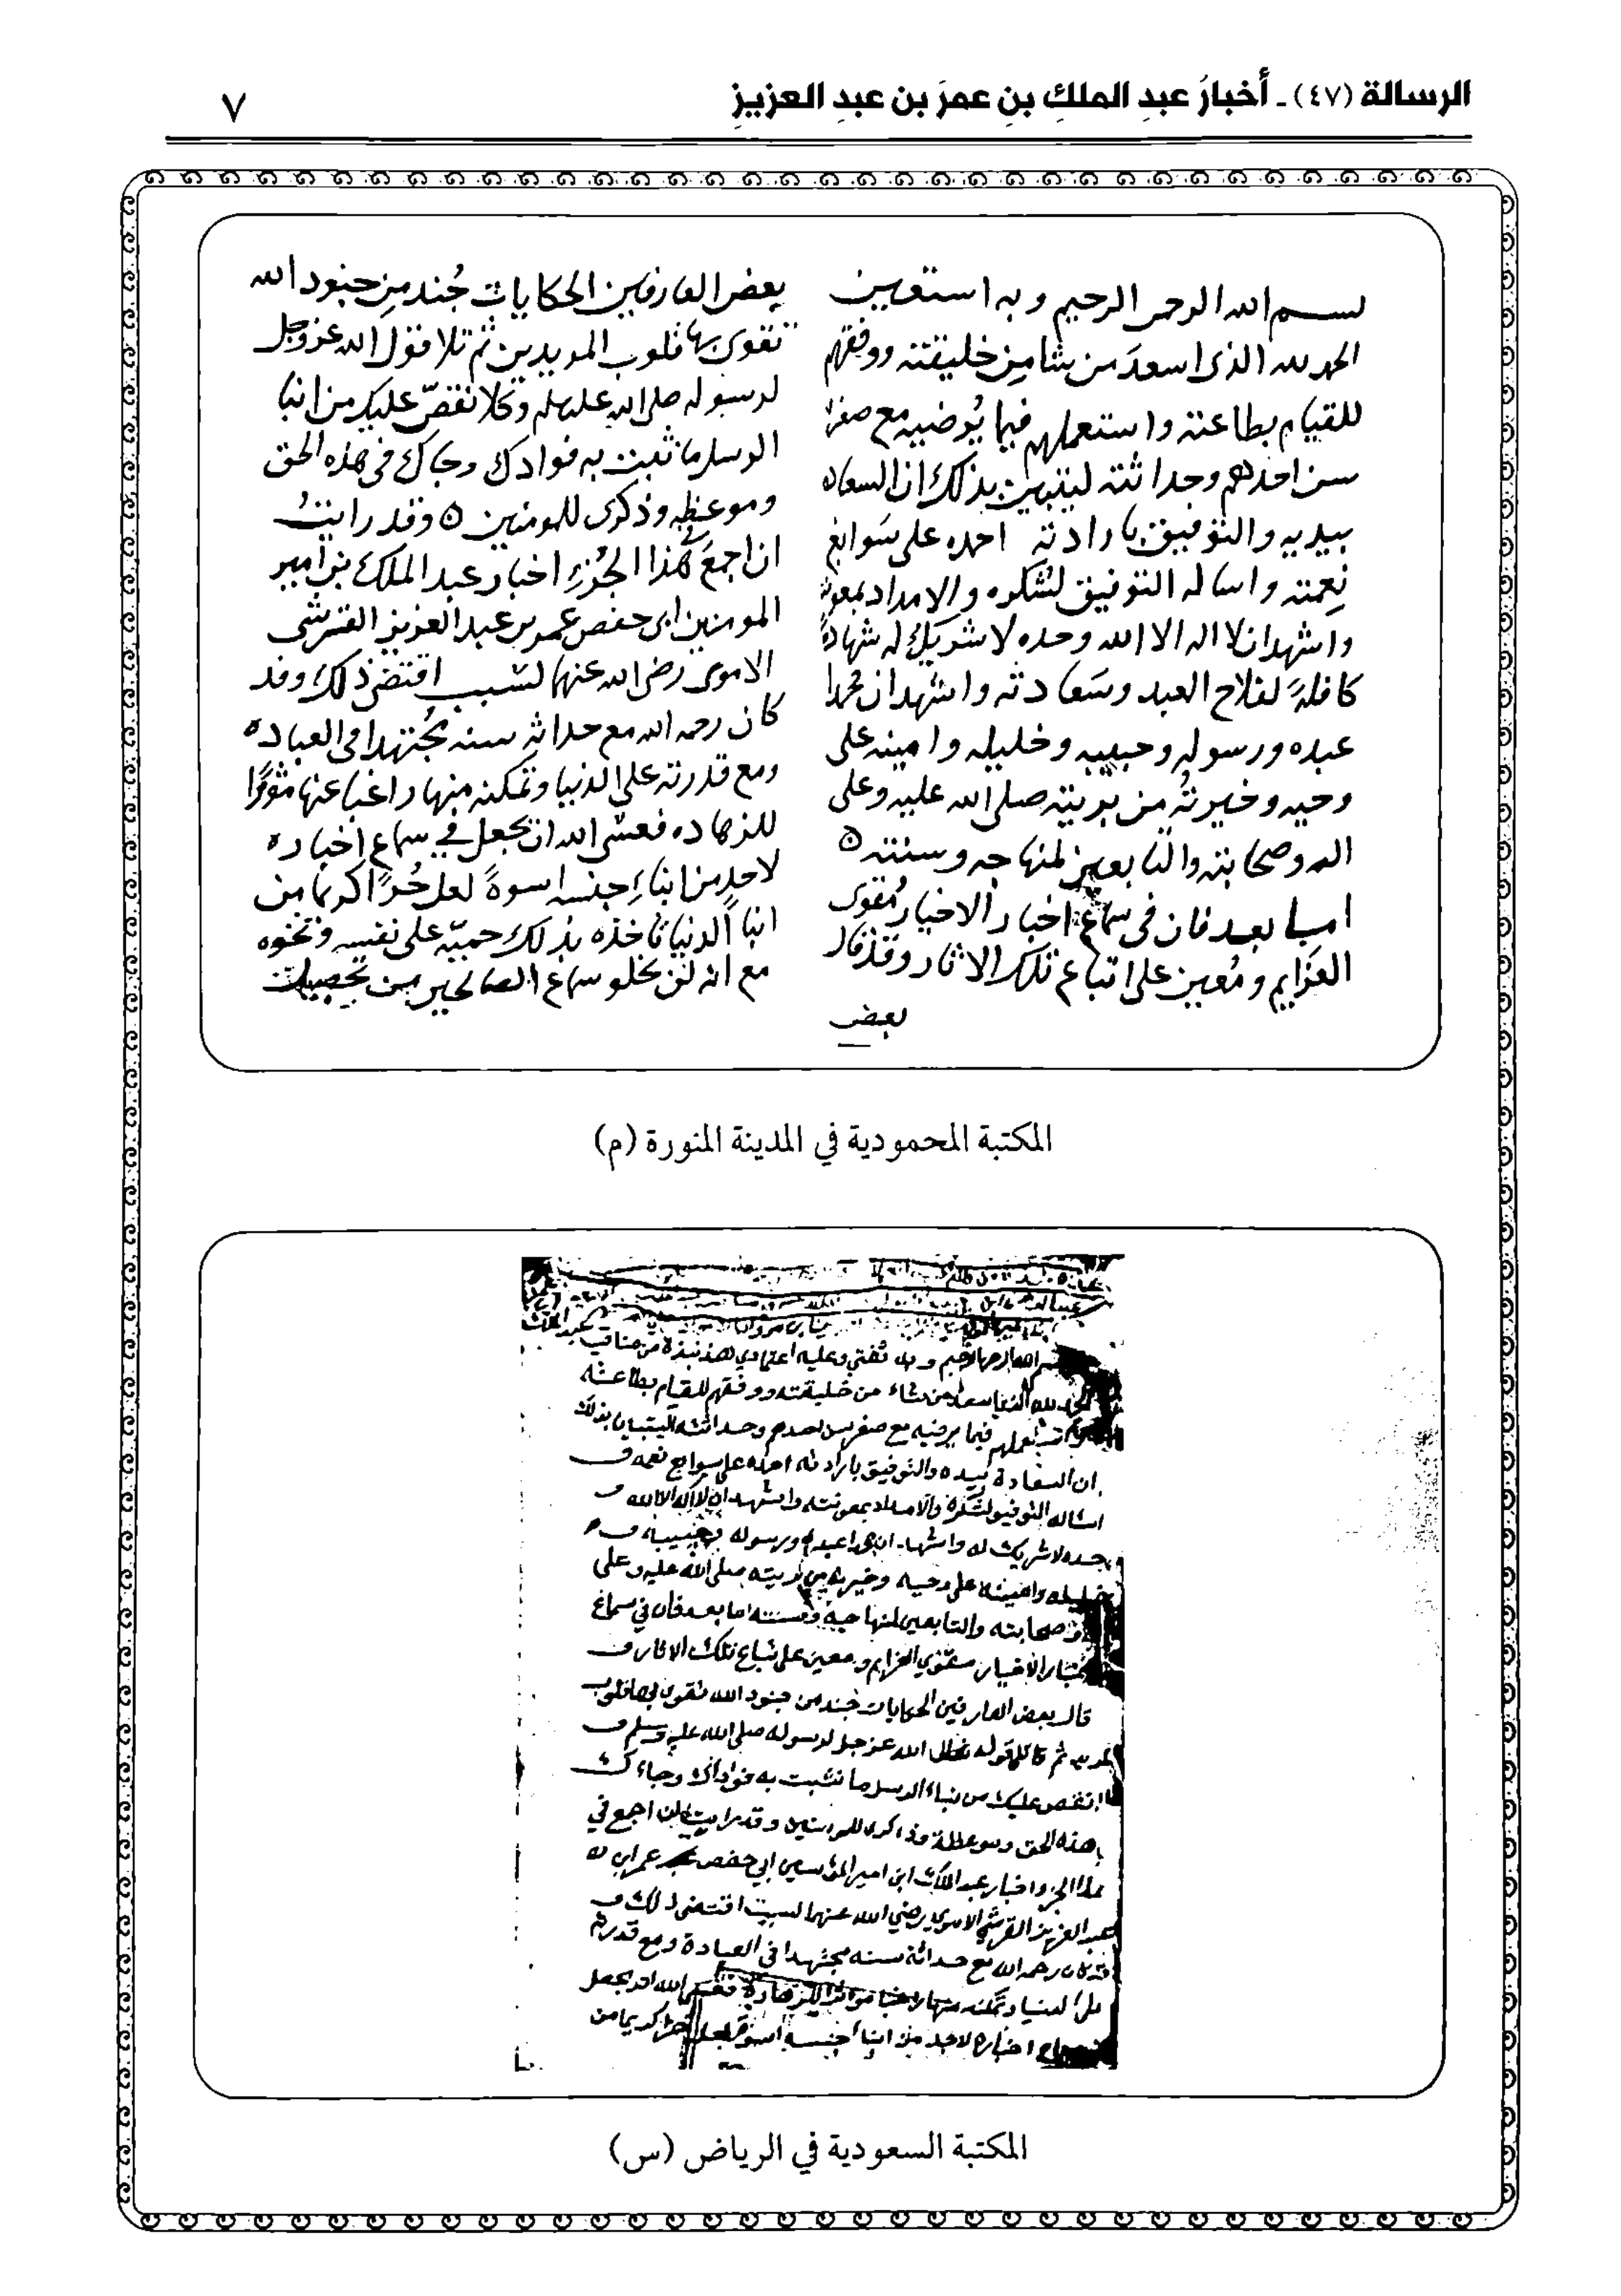 الرسالة (٤٧) ـ أخبارُ عبدِ الملكِ بنِ عمرَ بن عبدِ العزيزِ
٧
بسم الله الرحمن الرحيم وبه استعين
الحمد لله الذى اسعدَ من يشا مِن خليقته ووفقهم
للقيام بطاعته واستعملهم فيما يُرضيه مع صغر
سن احدهم وحداثته ليتبين بذلك ان السعاده
بيديه والتوفيق بارادته احمده على سَوابغ
نِعمته واساله التوفيق لشكره والامداد بمعونته
واشهد ان لا اله الا الله وحده لا شريك له شهادةً
كافلةً لفلاح العبد وسَعادته واشهد ان محمدا
عبده ورسوله وحبيبه وخليله وامينه على
وحيه وخيرتُه من بريته صلى الله عليه وعلى
اله وصحابته والتابعين لمنهاجه وسنته
اما بعد فان فى سماع اخبار الاخيار مُقوى
العَزايم ومُعين على اتباع تلك الاثار وقد قال
بعض
بعض العارفين الحكايات جُند مِن جنود الله
تقوى بها قلوب المريدين ثم تلا قول الله عز وجل
لرسوله صلى الله عليه وسلم وكلا نقصّ عليك من انبا
الرسل ما نثبت به فوادك وجاك فى هذه الحق
وموعظه وذكرى للمومنين وقد رايتُ
ان اجمعَ فى هذا الجُزءِ اخبار عبد الملك بن امير
المومنين ابى حفص عمر بن عبد العزيز القرشى
الاموى رضى الله عنهما لسبب اقتضى ذلك وقد
كان رحمه الله مع حداثةِ سنه مُجتهدا فى العباده
ومع قدرته على الدنيا وتمكنه منها راغبا عنها مؤثرًا
للزهاده فعسى الله ان يجعل فى سماع اخباره
لاحدٍ من ابناءِ جنسه اسوةً لعل حُرًّا كريما من
ابنا الدنيا تاخذه بذلك حميّه على نفسه ونخوه
مع انه لن يخلو سماع الصالحين من تحصيل
المكتبة المحمودية في المدينة المنورة (م)
الرحمن الرحيم وبه ثقتي وعليه اعتمادي هذه نبذة من مناقب عبد الملك
الحمد لله الذي اسعد من شاء من خليقته ووفقهم للقيام بطاعته
فيما يرضيه مع صغر سن احدهم وحداثته ليتبين بذلك
ان السعادة بيده والتوفيق بارادته احمده على سوابغ نعمه و
اساله التوفيق لشكره والامداد بمعونته واشهد ان لا اله الا الله و
حده لا شريك له واشهد ان محمدا عبده ورسوله وحبيبه و
خليله وامينه على وحيه وخيرته من بريته صلى الله عليه وعلى
وصحابته والتابعين لمنهاجه وسنته اما بعد فان في سماع
الاخيار مقوي العزايم ومعين على تباع تلك الاثار و
قال بعض العارفين الحكايات جند من جنود الله تقوى بها قلوب
الله عز وجل لرسوله صلى الله عليه وسلم و
نقص عليك من نباء الرسل ما نثبت به فوادك وجاءك
هذه الحق وموعظة وذكرى للمومنين وقد رايت ان اجمع في
هذا الجزو اخبار عبد الملك ابن امير المؤمنين ابي حفص عمر ابن
عبد العزيز القرشي الاموي رضي الله عنهما لسبب اقتضى ذلك و
قد كان رحمه الله مع حداثة سنه مجتهدا في العبادة ومع قدرته
على الدنيا وتمكنه منها راغبا مؤثرا للزهادة فعسى الله ان يجعل
اخباره لاحد من ابناء جنسه اسوة لعل حرا كريما من
المكتبة السعودية في الرياض (س)